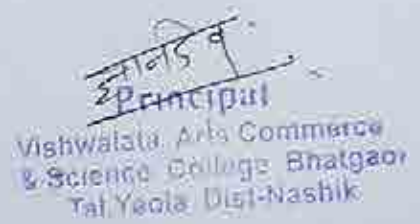 Principal
Vishwalata Arts Commerce
& Science College Bhatgaon
Tal Yeola Dist-Nashik